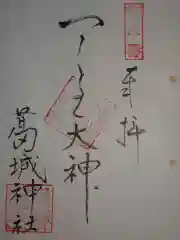 奉拝
一言主大神
葛城神社